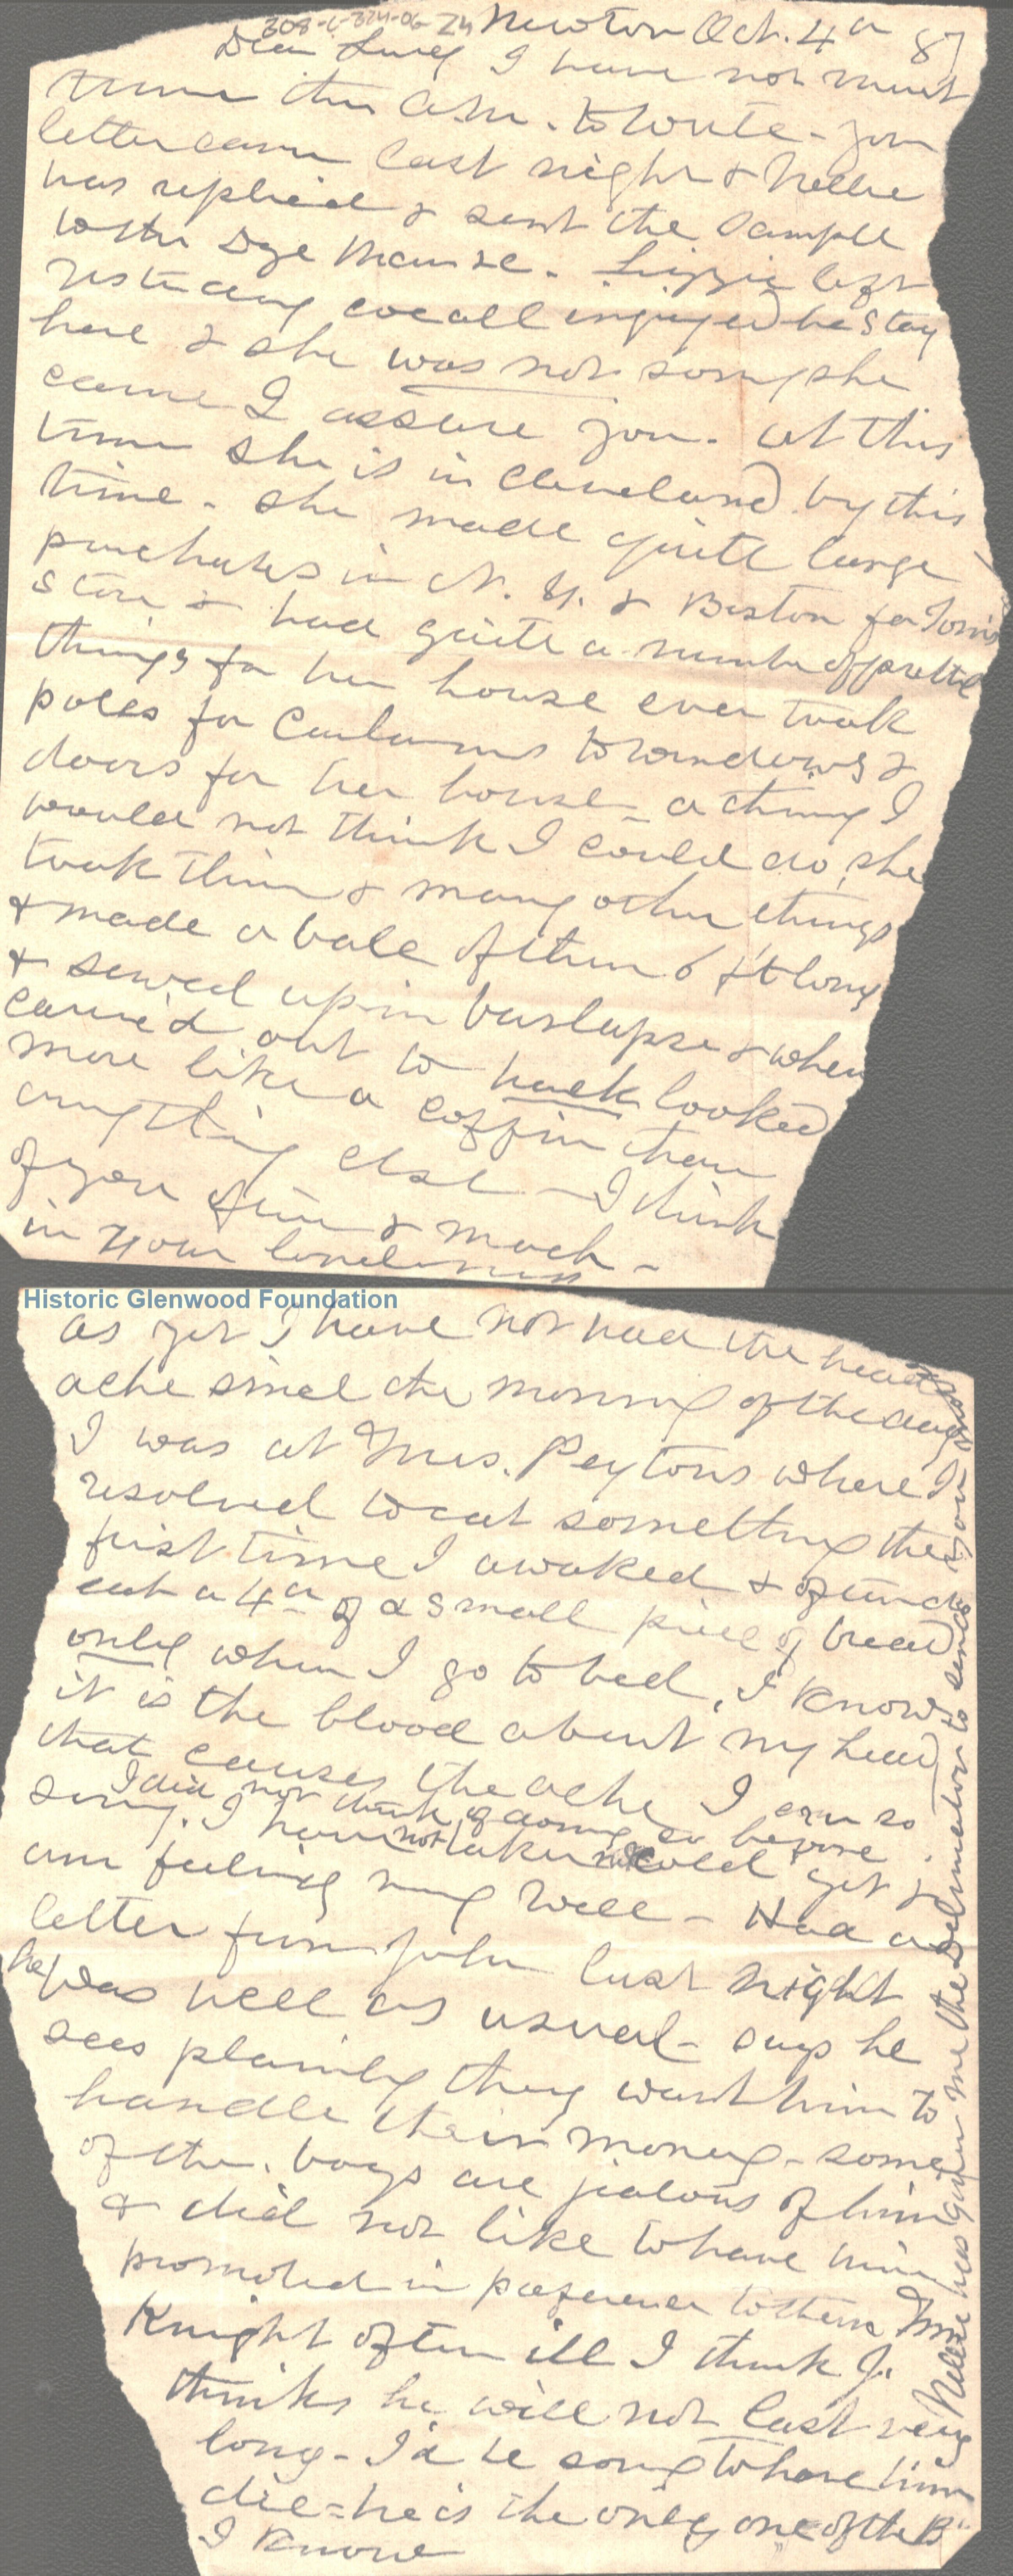 308-C-324-06-24 Newton Oct. 4th 87
Dear Lucy I have not much
time this A.M. to write - your
letter came last night & Nellie
has replied & sent the sample
to the Dye Manse. Lizzie left
yesterday we all enjoyed he stay
here & she was not sorry she
came I assure you. at this
time she is in Cleveland by this
time - She made quite large
purchases in N. Y. & Boston for
store & had quite a number of
things for her house even took
poles for Curtains to windows &
doors for her house - a thing I
would not think I could do, she
took them & many other things
& made a bale of them 6 ft long
& sewed up in burlapse & when
carried out to hack looked
more like a coffin than
anything else - I think
of you often & much -
in your loneliness
Historic Glenwood Foundation
as yet I have not had the head
ache since the morning of the day
I was at Mrs. Peytons where I
resolved to eat something the
first time I awaked & often
eat a 4th of a small piece of bread
only when I go to bed, I know
it is the blood about my head
that causes the ache I am so
I did not think of doing so before.
sorry. I have not taken cold yet &
am feeling very well - Had a
letter from John last night
he was well as usual - says he
sees plainly they want him to
handle their money - some
of the boys are jealous of him
& did not like to have him
promoted in preference to them
Knight often ill I think J.
thinks he will not last very
long - I'd be sorry to have him
die = he is the only one of the B"
I know
Nellie has given me the to send you